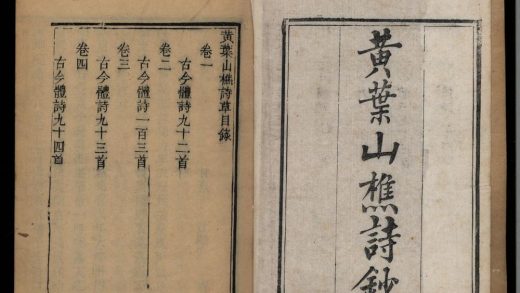 黃葉山樵詩鈔
黃葉山樵詩草目錄
卷一
古今體詩九十二首
卷二
古今體詩一百三首
卷三
古今體詩九十三首
卷四
古今體詩九十四首